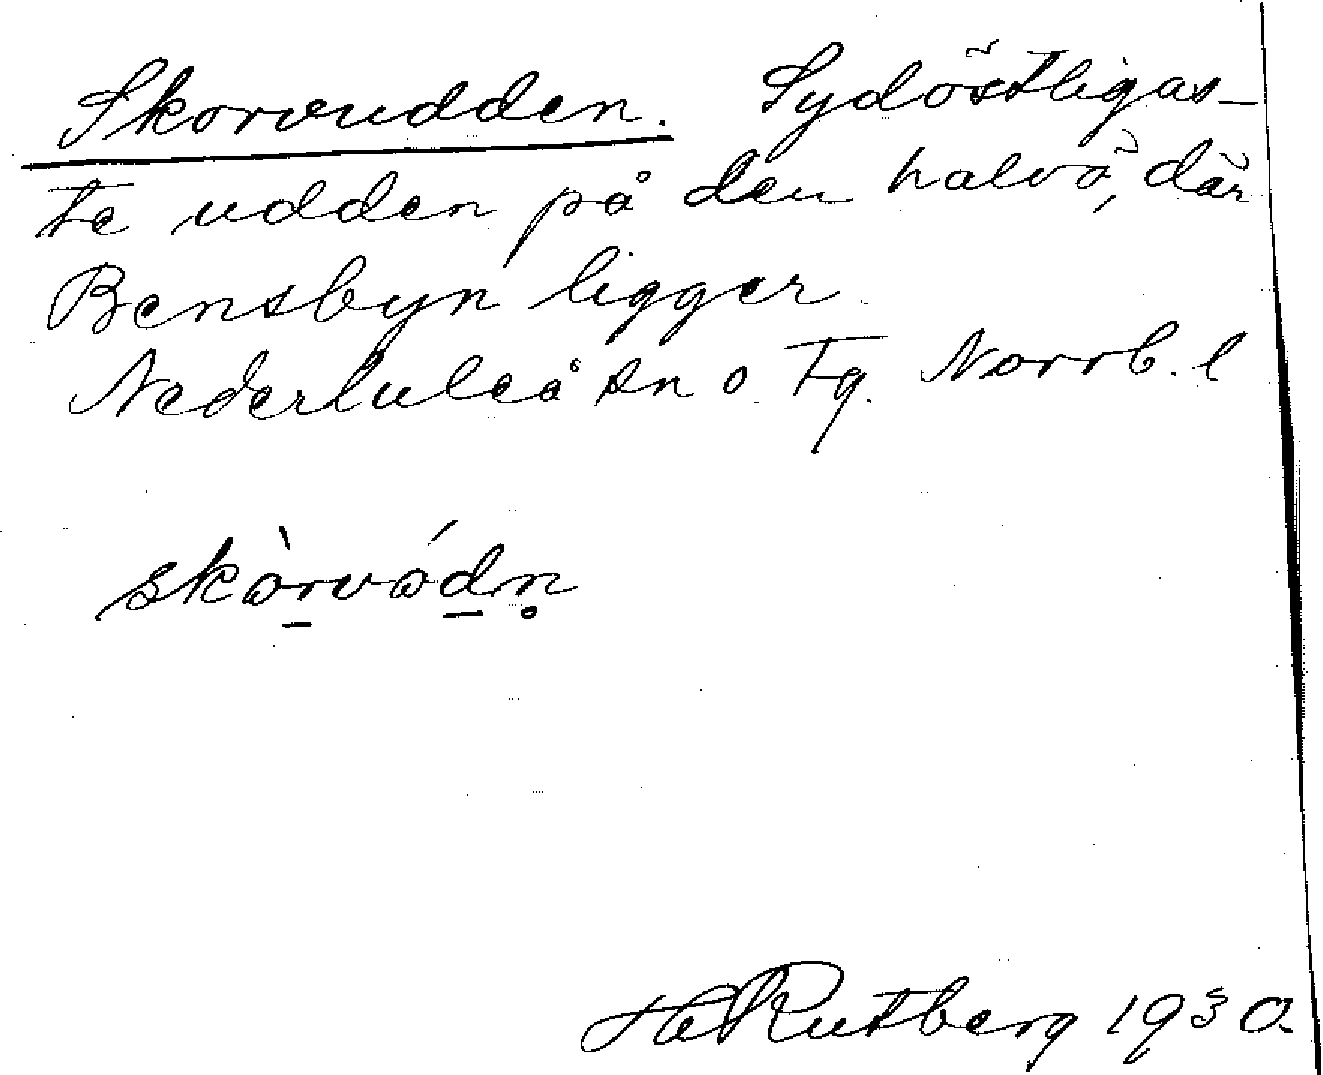 Skorvudden. Sydöstligas-
te udden på den halvö, där
Bensbyn ligger.
Nederluleå sn o. Tg. Norrb. l
skòrvódn̥
H Rutberg 1930.